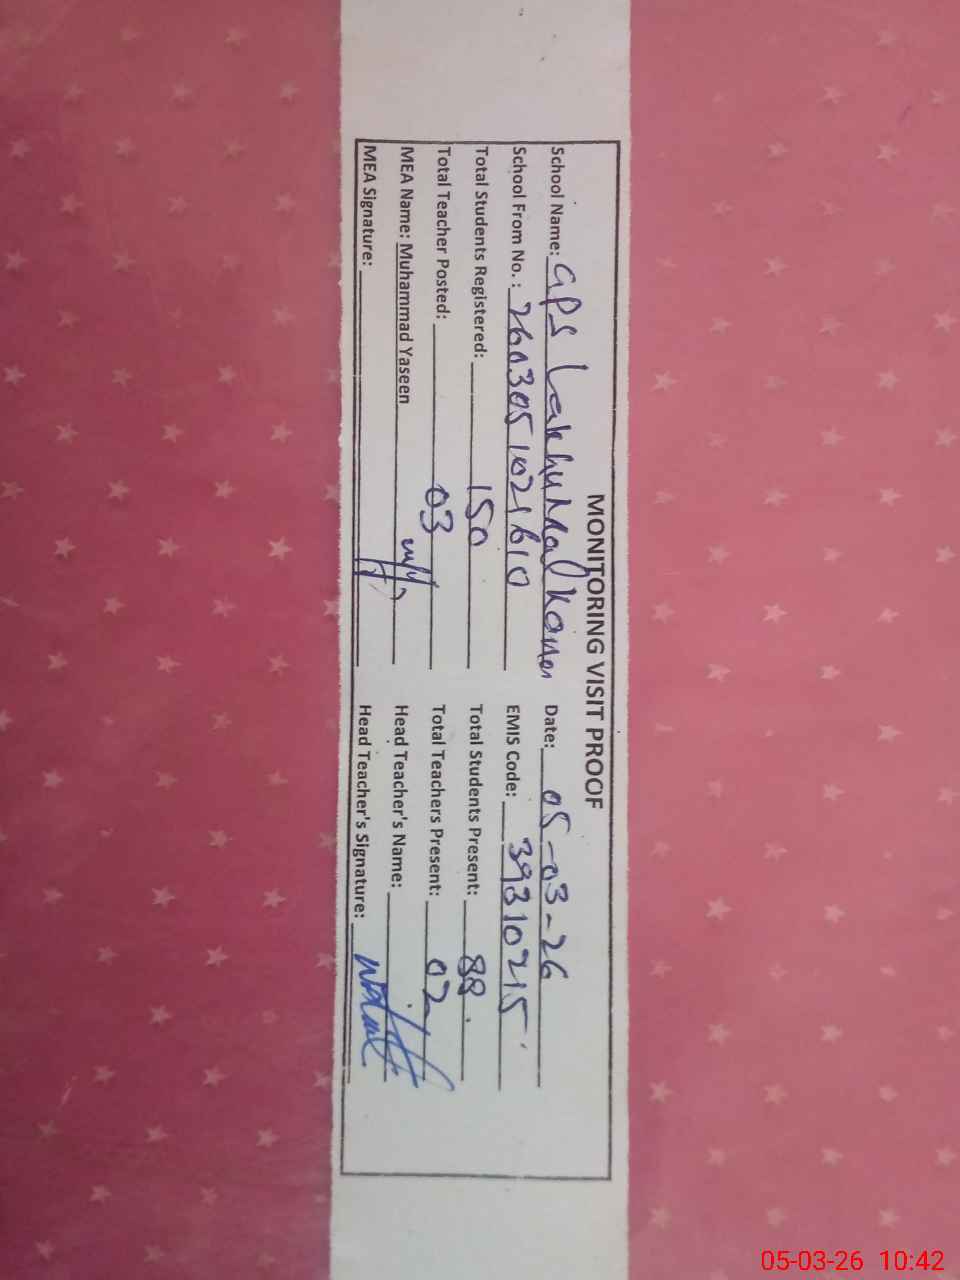 MONITORING VISIT PROOF
School Name: GPS Lakhu Mal Date: 05-03-26
School From No.: EMIS Code: 39310215
Total Students Registered: 150 Total Students Present: 88
Total Teacher Posted: 03 Total Teachers Present: 02
MEA Name: Muhammad Yaseen Head Teacher's Name:
MEA Signature: Head Teacher's Signature:
05-03-26 10:42